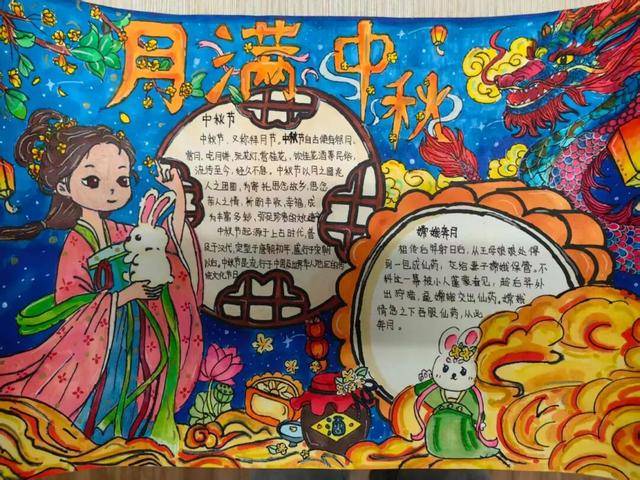 月满中秋
中秋节
中秋节，又称拜月节，中秋节自古便有祭月、
赏月、吃月饼、玩花灯、赏桂花、饮桂花酒等民俗，
流传至今，经久不息。中秋节以月之圆兆
人之团圆，为寄托思念故乡，思念
亲人之情，祈盼丰收、幸福，成
为丰富多彩、弥足珍贵的文化遗产
中秋节起源于上古时代，普
及于汉代，定型于唐朝初年，盛行于宋朝
以后。中秋节是流行于中国及世界华人地区的
传统文化节日
嫦娥奔月
相传后羿射日后，从王母娘娘处得
到一包成仙药，交给妻子嫦娥保管。不
料这一幕被小人蓬蒙看见，趁后羿外
出狩猎，逼嫦娥交出仙药。嫦娥
情急之下吞服仙药，从此
奔月。